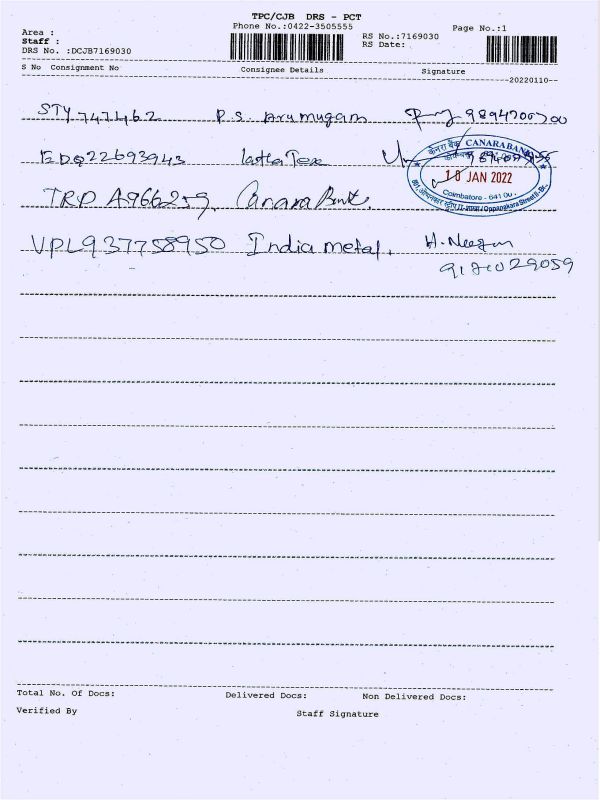 TPC/CJB DRS - PCT
Area :
Phone No.:0422-3505555
Page No.:1
Staff :
RS No.:7169030
DRS No. :DCJB7169030
RS Date:
S No Consignment No Consignee Details Signature
20220110
STY 747462 P.S. Arumugam 9894700700
EDQ22693943 Tex
केनरा बैंक CANARA BANK
10 JAN 2022
Coimbatore - 641 00
Oppanakara Street B.
TRP A966259 Canara Bank.
VPL937758950 India metal.
9171029059
Total No. Of Docs: Delivered Docs: Non Delivered Docs:
Verified By Staff Signature